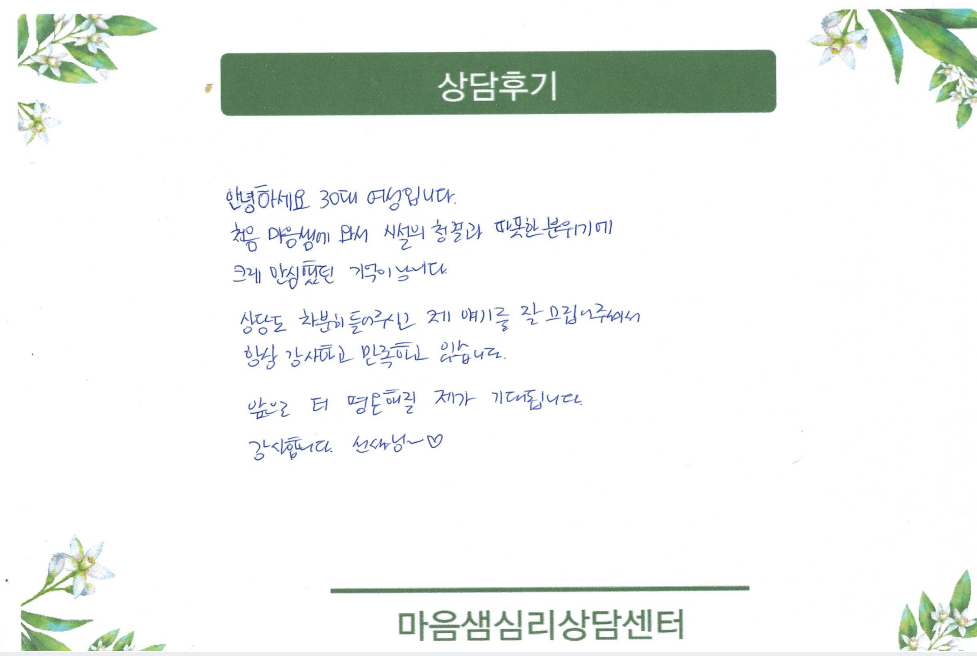 상담후기
안녕하세요 30대 여성입니다.
처음 마음샘에 와서 시설의 청결과 따뜻한 분위기에
크게 안심했던 기억이 납니다.
상담도 차분히 들어주시고 제 얘기를 잘
항상 감사하고 만족하고 있습니다.
앞으로 더 평온해질 제가 기대됩니다.
감사합니다. 선생님~♡
마음샘심리상담센터